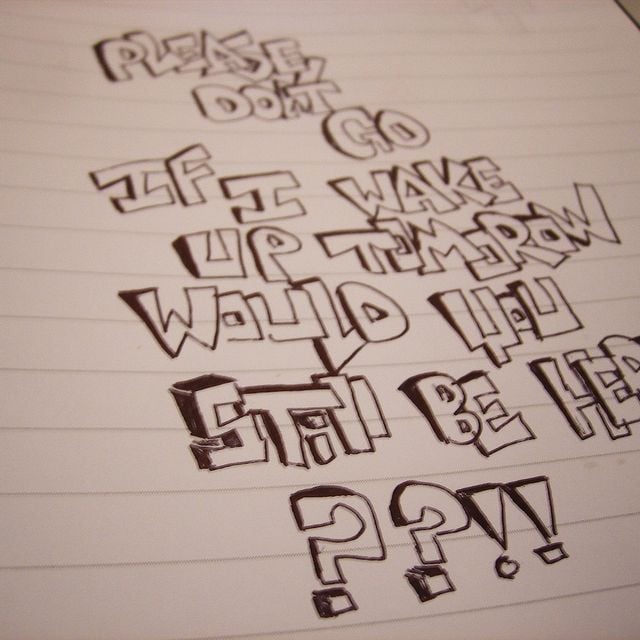 PLEASE,
DON'T
GO
IF I WAKE
UP TOMOROW
WOULD YOU
STILL BE HER
??!!